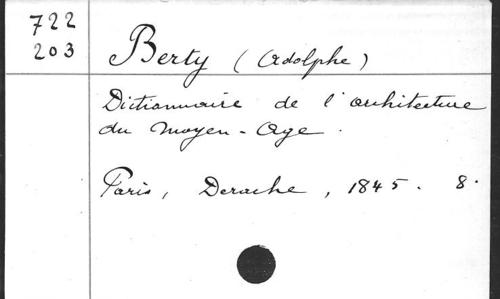 722
203
Berty (Adolphe)
Dictionnaire de l'architecture
du Moyen-Age.
Paris, Derache, 1845. 8.